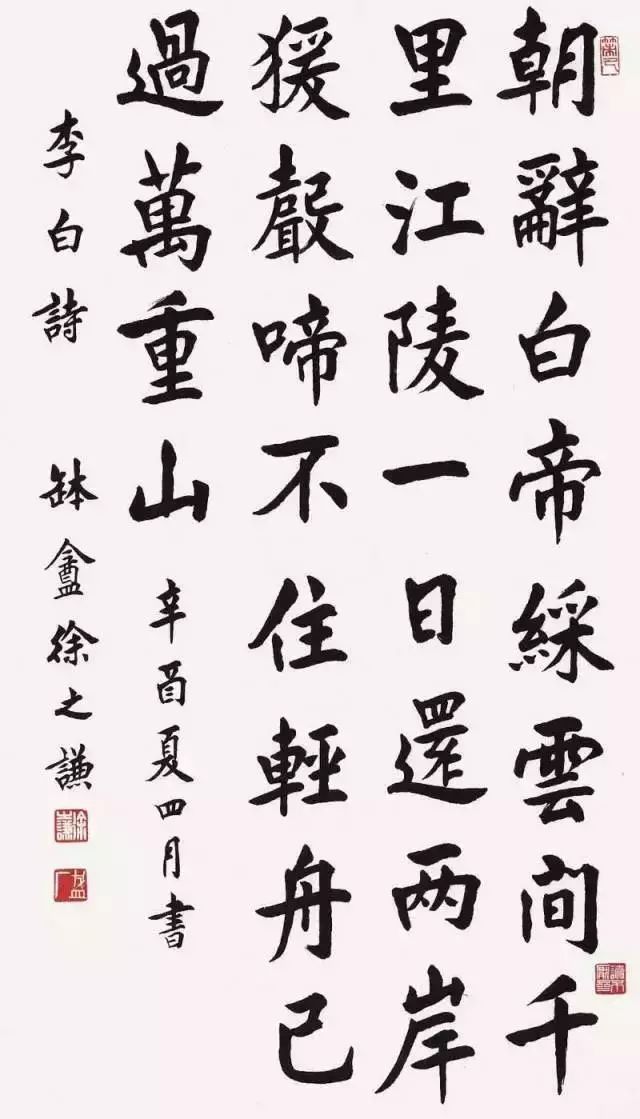 朝辭白帝綵雲间千
里江陵一日還两岸
猨聲啼不住輕舟已
過萬重山 辛酉夏四月書
李白詩 缽盦徐之謙